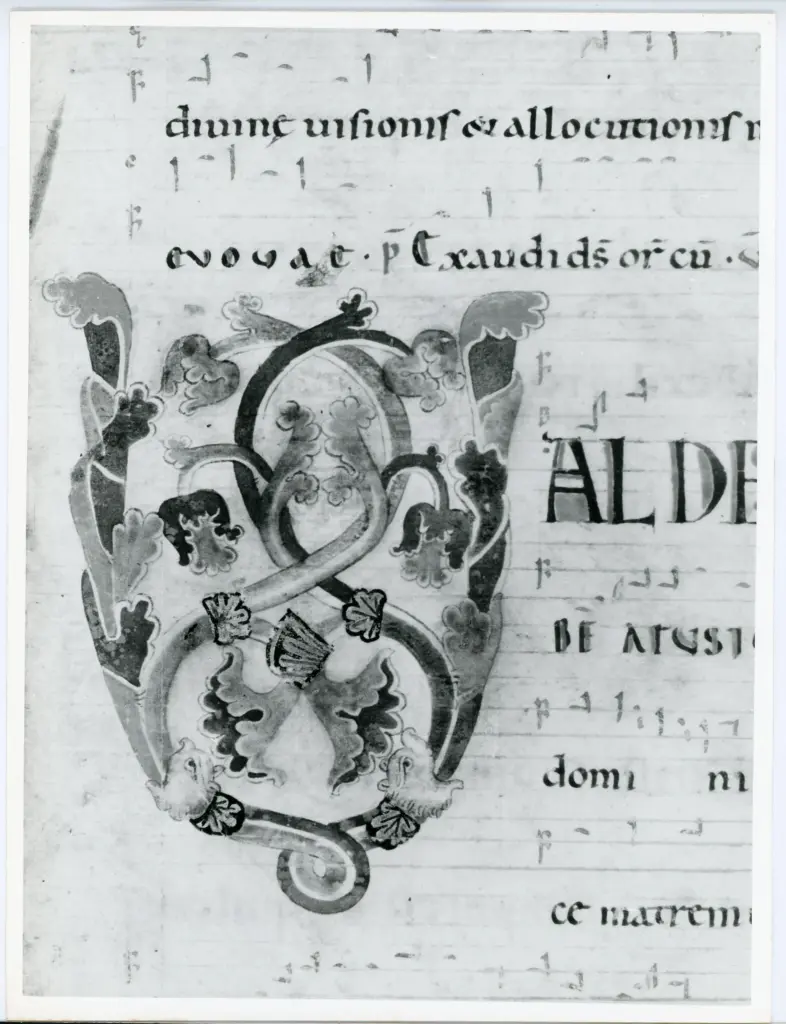 diuinę uisionis & allocutionis
euouae · p̄ Exaudi ds̄ or̄ cū ·
V
AL DE
BE ATUS
domi ni
ce matrem